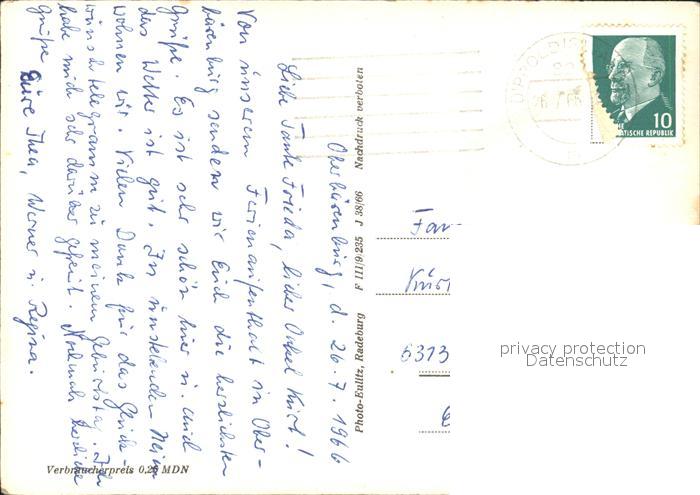 Oberbärenburg, d. 26.7.1966
Liebe Tante Frieda, lieber Onkel Kurt!
Von unserem Ferienaufenthalt in Ober-
bärenburg senden wir Euch die herzlichsten
Grüße. Es ist sehr schön hier u. auch
das Wetter ist gut. Im umstehenden Heim
wohnen wir. Vielen Dank für das Glück-
wunschtelegramm zu meinem Geburtstag. Ich
habe mich sehr darüber gefreut. Nochmals herzliche
Grüße Eure Thea, Werner u. Regina.
Verbraucherpreis 0,25 MDN
Photo-Eulitz, Radeburg F III/9/235 J 38/66 Nachdruck verboten
DIPPOLDIS
10
TISCHE REPUBLIK
Fam
Kurt
6313
privacy protection
Datenschutz